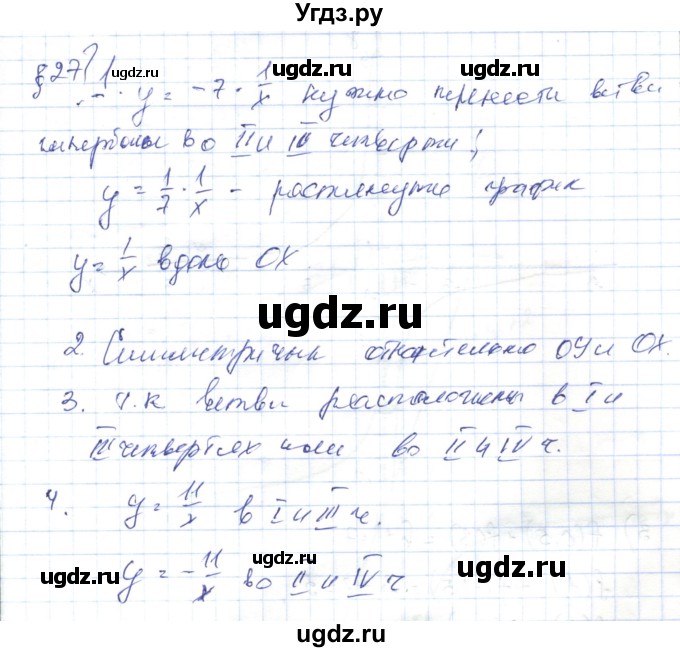 Угдз.ру
§27 1. y = -7 · 1/x нужно перенести ветви
гиперболы во II и IV четверти;
y = 1/7 · 1/x - растянутие график
y = 1/x вдоль OX
2. Симметричны относительно OY и OX.
3. Т.к ветви расположены в I и
III четвертях или во II и IV ч.
4. y = 11/x в I и III ч.
y = -11/x во II и IV ч.
ugdz.ru
ugdz.ru
ugdz.ru
ugdz.ru
ugdz.ru
ugdz.ru
ugdz.ru
ugdz.ru